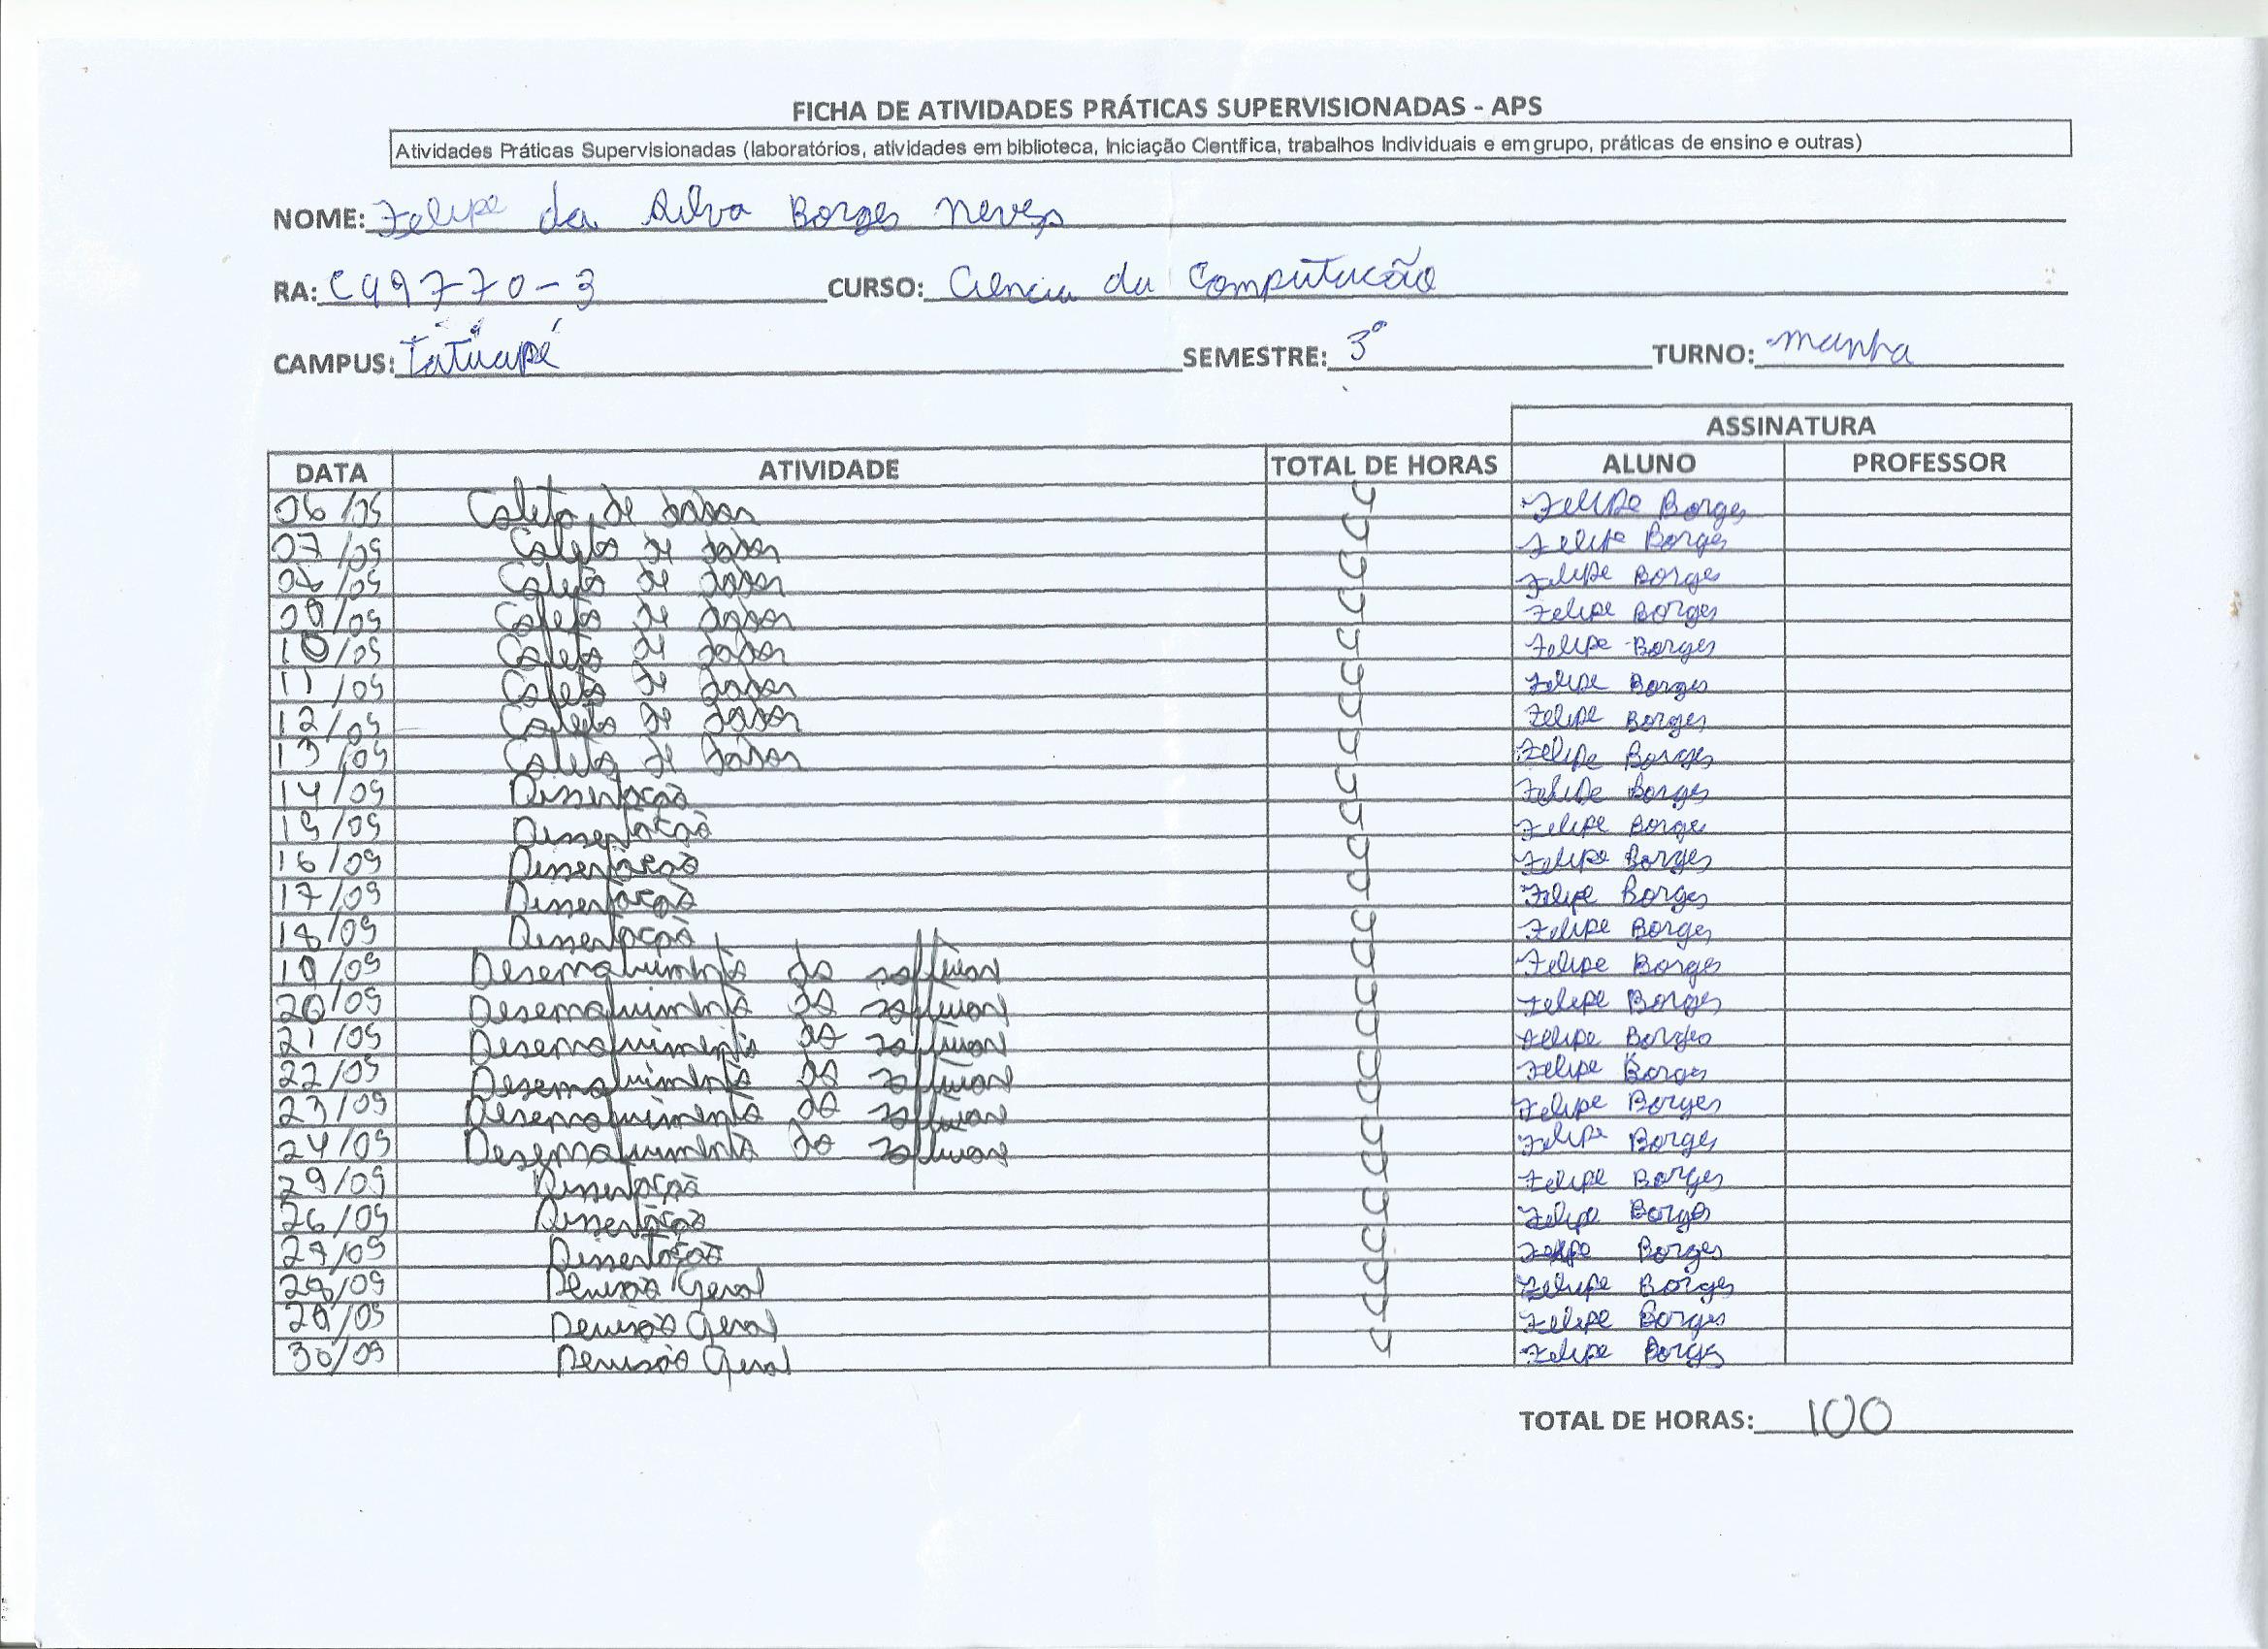 FICHA DE ATIVIDADES PRÁTICAS SUPERVISIONADAS - APS
Atividades Práticas Supervisionadas (laboratórios, atividades em biblioteca, Iniciação Científica, trabalhos Individuais e em grupo, práticas de ensino e outras)
NOME: Felipe da Silva Borges Neves
RA: C99770-3 CURSO: Ciencia da Computacão
CAMPUS: Tatuapé SEMESTRE: 3º TURNO: manha
ASSINATURA
DATA ATIVIDADE TOTAL DE HORAS ALUNO PROFESSOR
06/09 Coleta de dados 4 Felipe Borges
07/09 Coleta de dados 4 Felipe Borges
08/09 Coleta de dados 4 Felipe Borges
09/09 Coleta de dados 4 Felipe Borges
10/09 Coleta de dados 4 Felipe Borges
11/09 Coleta de dados 4 Felipe Borges
12/09 Coleta de dados 4 Felipe Borges
13/09 Coleta de dados 4 Felipe Borges
14/09 Dissertação 4 Felipe Borges
15/09 Dissertação 4 Felipe Borge
16/09 Dissertação 4 Felipe Borges
17/09 Dissertação 4 Felipe Borges
18/09 Dissertação 4 Felipe Borges
19/09 Desenvolvimento do software 4 Felipe Borges
20/09 Desenvolvimento do software 4 Felipe Borges
21/09 Desenvolvimento do software 4 Felipe Borges
22/09 Desenvolvimento do software 4 Felipe Borges
23/09 Desenvolvimento do software 4 Felipe Borges
24/09 Desenvolvimento do software 4 Felipe Borges
25/09 Dissertação 4 Felipe Borges
26/09 Dissertação 4 Felipe Borges
27/09 Dissertação 4 Felipe Borges
28/09 Revisão Geral 4 Felipe Borges
29/09 Revisão Geral 4 Felipe Borges
30/09 Revisão Geral 4 Felipe Borges
TOTAL DE HORAS: 100